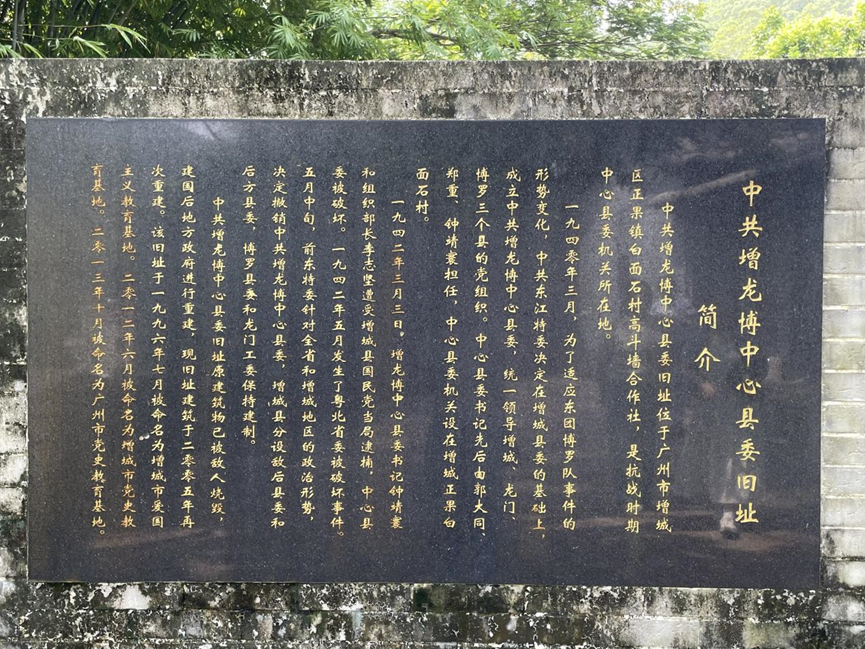 中共增龙博中心县委旧址
简介
中共增龙博中心县委旧址位于广州市增城
区正果镇白面石村高斗墙合作社，是抗战时期
中心县委机关所在地。
一九四零年三月，为了适应东团博罗队事件的
形势变化，中共东江特委决定在增城县委的基础上，
成立中共增龙博中心县委，统一领导增城、龙门、
博罗三个县的党组织。中心县委书记先后由郭大同、
郑重、钟靖寰担任，中心县委机关设在增城正果白
面石村。
一九四二年三月三日。增龙博中心县委书记钟靖寰
和组织部长李志坚遭受增城县国民党当局逮捕，中心县
委被破坏。一九四二年五月发生了粤北省委被破坏事件。
五月中旬，前东特委针对全省和增城地区的政治形势，
决定撤销中共增龙博中心县委，增城县分设敌后县委和
后方县委，博罗县委和龙门工委保持建制。
中共增龙博中心县委旧址原建筑物已被敌人烧毁，
建国后地方政府进行重建，现旧址建筑于二零零五年再
次重建。该旧址于一九九六年七月被命名为增城市爱国
主义教育基地。二零一二年六月被命名为增城市党史教
育基地。二零一三年十月被命名为广州市党史教育基地。